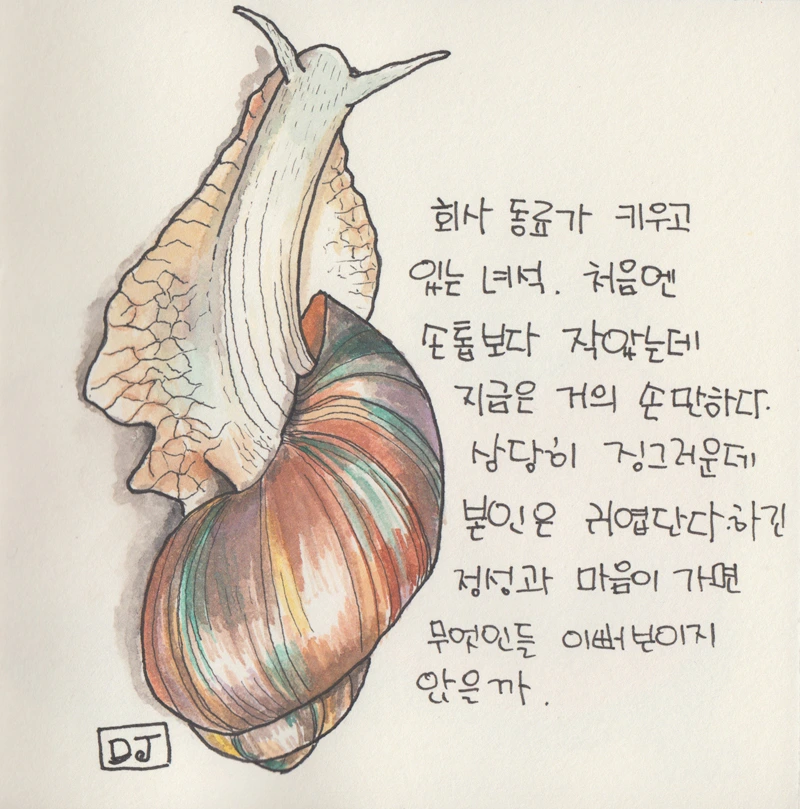 회사 동료가 키우고
있는 녀석. 처음엔
손톱보다 작았는데
지금은 거의 손만하다.
상당히 징그러운데
본인은 귀엽단다.하긴
정성과 마음이 가면
무엇인들 이뻐보이지
않을까.
DJ